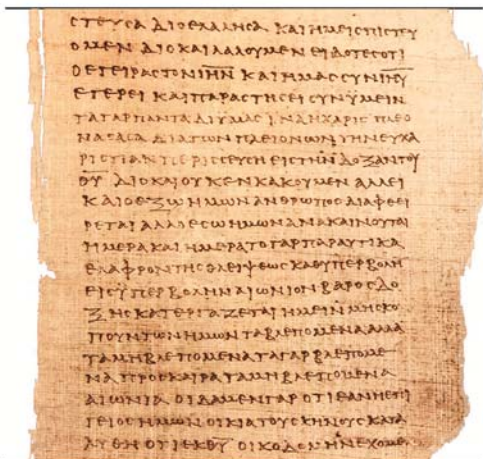 ΣΤΕΥΣΑ ΔΙΟ ΕΛΑΛΗΣΑ ΚΑΙ ΗΜΕΙΣ ΠΙΣΤΕΥ
ΟΜΕΝ ΔΙΟ ΚΑΙ ΛΑΛΟΥΜΕΝ ΕΙΔΟΤΕΣ ΟΤΙ
Ο ΕΓΕΙΡΑΣ ΤΟΝ Ι̅Η̅Ν̅ ΚΑΙ ΗΜΑΣ ΣΥΝ Ι̅Η̅Υ̅
ΕΓΕΡΕΙ ΚΑΙ ΠΑΡΑΣΤΗΣΕΙ ΣΥΝ ΫΜΕΙΝ
ΤΑ ΓΑΡ ΠΑΝΤΑ ΔΙ ΥΜΑΣ ΙΝΑ Η ΧΑΡΙΣ ΠΛΕΟ
ΝΑΣΑΣΑ ΔΙΑ ΤΩΝ ΠΛΕΙΟΝΩΝ ΤΗΝ ΕΥΧΑ
ΡΙΣΤΙΑΝ ΠΕΡΙΣΣΕΥΣΗ ΕΙΣ ΤΗΝ ΔΟΞΑΝ ΤΟΥ
Θ̅Υ̅ ΔΙΟ ΚΑΙ ΟΥΚ ΕΝΚΑΚΟΥΜΕΝ ΑΛΛ ΕΙ
ΚΑΙ Ο ΕΞΩ ΗΜΩΝ ΑΝΘΡΩΠΟΣ ΔΙΑΦΘΕΙ
ΡΕΤΑΙ ΑΛΛ Ο ΕΣΩ ΗΜΩΝ ΑΝΑΚΑΙΝΟΥΤΑΙ
ΗΜΕΡΑ ΚΑΙ ΗΜΕΡΑ ΤΟ ΓΑΡ ΠΑΡΑΥΤΙΚΑ
ΕΛΑΦΡΟΝ ΤΗΣ ΘΛΕΙΨΕΩΣ ΚΑΘ ΥΠΕΡΒΟΛΗ
ΕΙΣ ΫΠΕΡΒΟΛΗΝ ΑΙΩΝΙΟΝ ΒΑΡΟΣ ΔΟ
ΞΗΣ ΚΑΤΕΡΓΑΖΕΤΑΙ ΗΜΕΙΝ ΜΗ ΣΚΟ
ΠΟΥΝΤΩΝ ΗΜΩΝ ΤΑ ΒΛΕΠΟΜΕΝΑ ΑΛΛΑ
ΤΑ ΜΗ ΒΛΕΠΟΜΕΝΑ ΤΑ ΓΑΡ ΒΛΕΠΟΜΕ
ΝΑ ΠΡΟΣΚΑΙΡΑ ΤΑ ΜΗ ΒΛΕΠΟΜΕΝΑ
ΑΙΩΝΙΑ ΟΙΔΑΜΕΝ ΓΑΡ ΟΤΙ ΕΑΝ Η ΕΠΙ
ΓΕΙΟΣ ΗΜΩΝ ΟΙΚΙΑ ΤΟΥ ΣΚΗΝΟΥΣ ΚΑΤΑ
ΛΥΘΗ ΟΤΙ ΕΚ Θ̅Υ̅ ΟΙΚΟΔΟΜΗΝ ΕΧΟΜΕ